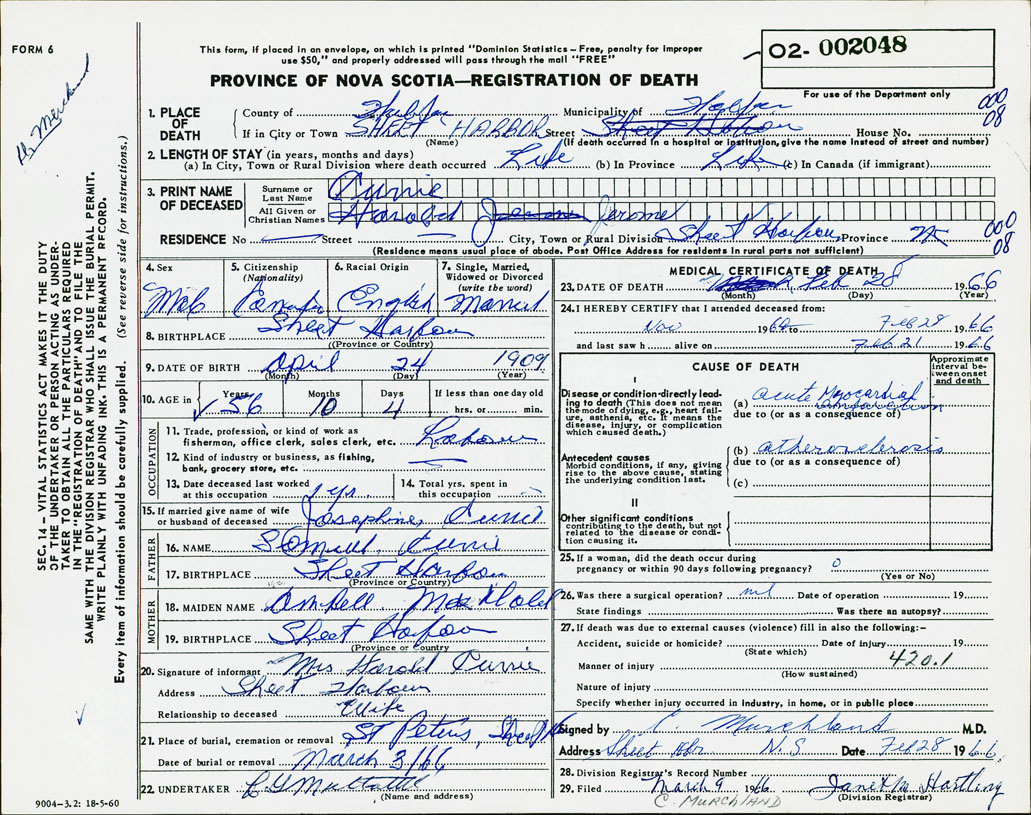 FORM 6
This form, if placed in an envelope, on which is printed "Dominion Statistics – Free, penalty for improper
use $50," and properly addressed will pass through the mail "FREE"
PROVINCE OF NOVA SCOTIA—REGISTRATION OF DEATH
02- 002048
For use of the Department only
000
08
1. PLACE OF DEATH
County of Halifax Municipality of Halifax
If in City or Town SHEET HARBOR Street House No.
(Name) (If death occurred in a hospital or institution, give the name instead of street and number)
2. LENGTH OF STAY (in years, months and days)
(a) In City, Town or Rural Division where death occurred Life (b) In Province Life (c) In Canada (if immigrant)
3. PRINT NAME OF DECEASED
Surname or Last Name Currie
All Given or Christian Names Harold Jerome
RESIDENCE No Street City, Town or Rural Division Sheet Harbour Province NS
000
08
(Residence means usual place of abode. Post Office Address for residents in rural parts not sufficient)
4. Sex Male
5. Citizenship (Nationality) Canada
6. Racial Origin English
7. Single, Married, Widowed or Divorced (write the word) Married
8. BIRTHPLACE Sheet Harbour
(Province or Country)
9. DATE OF BIRTH April 24 1909
(Month) (Day) (Year)
10. AGE in Years 56 Months 10 Days 4 If less than one day old hrs. or min.
OCCUPATION
11. Trade, profession, or kind of work as
fisherman, office clerk, sales clerk, etc. Labour
12. Kind of industry or business, as fishing,
bank, grocery store, etc.
13. Date deceased last worked
at this occupation 1 yrs.
14. Total yrs. spent in
this occupation
15. If married give name of wife
or husband of deceased Josephine Currie
FATHER
16. NAME Currie
17. BIRTHPLACE Sheet Harbour
(Province or Country)
MOTHER
18. MAIDEN NAME
19. BIRTHPLACE Sheet Harbour
(Province or Country
20. Signature of informant Mrs Harold Currie
Address Sheet Harbour
Relationship to deceased Wife
21. Place of burial, cremation or removal St Peters,
Date of burial or removal March 3/66
22. UNDERTAKER
(Name and address)
9004-3.2: 18-5-60
MEDICAL CERTIFICATE OF DEATH
23. DATE OF DEATH Feb 28 1966
(Month) (Day) (Year)
24. I HEREBY CERTIFY that I attended deceased from:
Nov 1964 to Feb 28 1966
and last saw h alive on Feb 21 1966
CAUSE OF DEATH
Approximate interval between onset and death
I
Disease or condition directly leading to death (This does not mean the mode of dying, e.g., heart failure, asthenia, etc. It means the disease, injury, or complication which caused death.)
(a) acute Myocardial
due to (or as a consequence of)
Antecedent causes
Morbid conditions, if any, giving rise to the above cause, stating the underlying condition last.
(b) atherosclerosis
due to (or as a consequence of)
(c)
II
Other significant conditions
contributing to the death, but not related to the disease or condition causing it.
25. If a woman, did the death occur during
pregnancy or within 90 days following pregnancy? 0
(Yes or No)
26. Was there a surgical operation? nil Date of operation 19
State findings Was there an autopsy?
27. If death was due to external causes (violence) fill in also the following:–
Accident, suicide or homicide? Date of injury 19
(State which)
Manner of injury 420.1
(How sustained)
Nature of injury
Specify whether injury occurred in industry, in home, or in public place
Signed by C Murchland M.D.
Address Sheet Hbr N.S Date Feb 28 1966
28. Division Registrar's Record Number
29. Filed March 9 1966 Janet M Hartling
(Division Registrar)
C. MURCHLAND
SEC. 14 – VITAL STATISTICS ACT MAKES IT THE DUTY
OF THE UNDERTAKER OR PERSON ACTING AS UNDER-
TAKER TO OBTAIN ALL THE PARTICULARS REQUIRED
IN THE "REGISTRATION OF DEATH" AND TO FILE THE
SAME WITH THE DIVISION REGISTRAR WHO SHALL ISSUE THE BURIAL PERMIT.
WRITE PLAINLY WITH UNFADING INK. THIS IS A PERMANENT RECORD.
Every item of information should be carefully supplied. (See reverse side for instructions.)